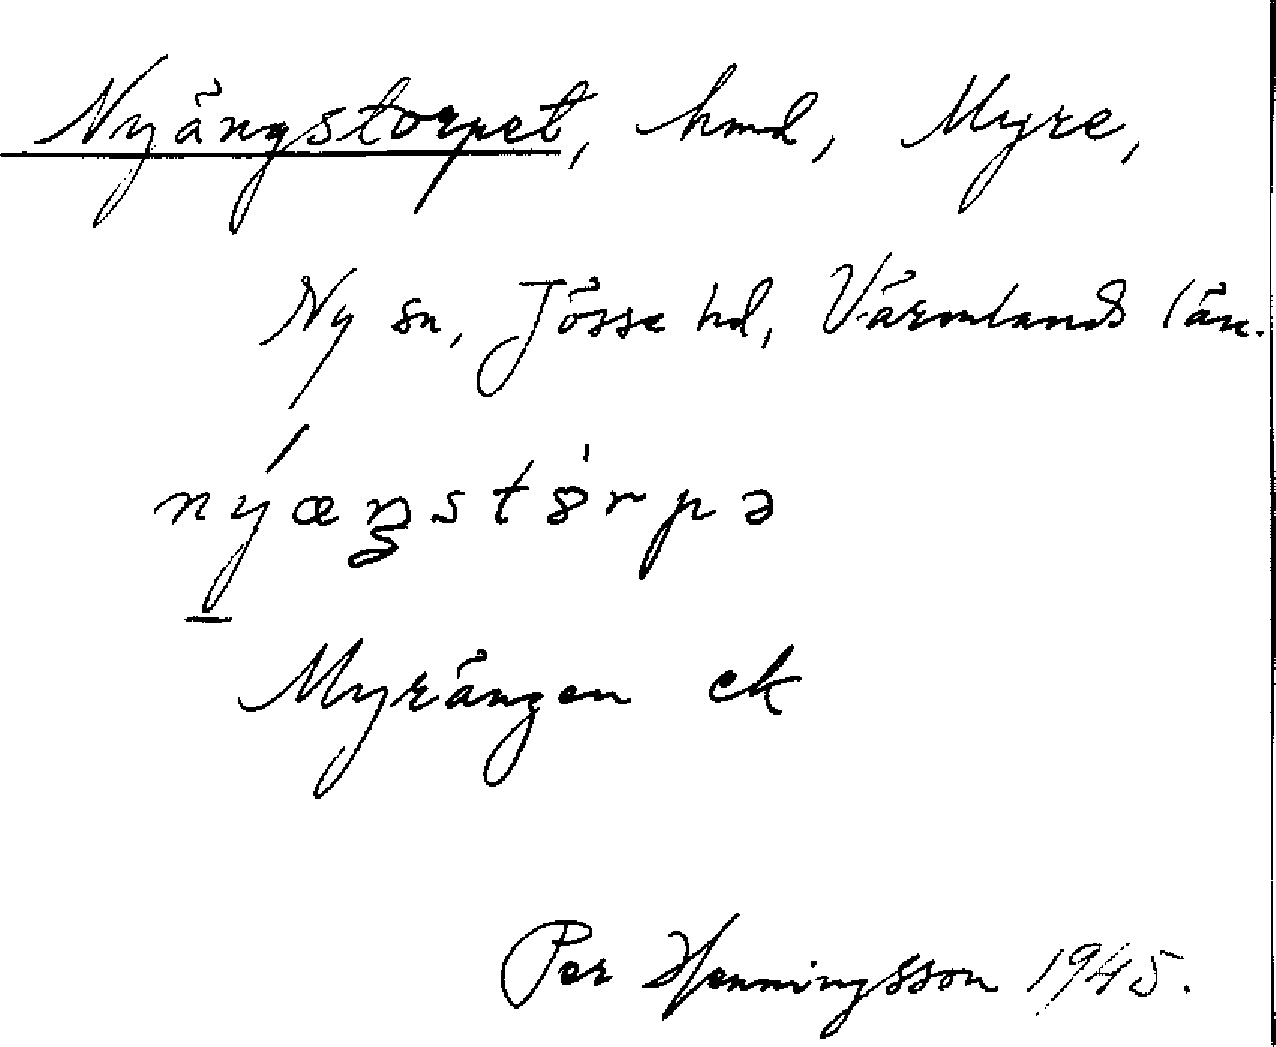 Nyängstorpet, hmd, Myre,
Ny sn, Jösse hd, Värmlands län.
nýæŋstȯrpə
Myrängen ek
Per Henningsson 1945.